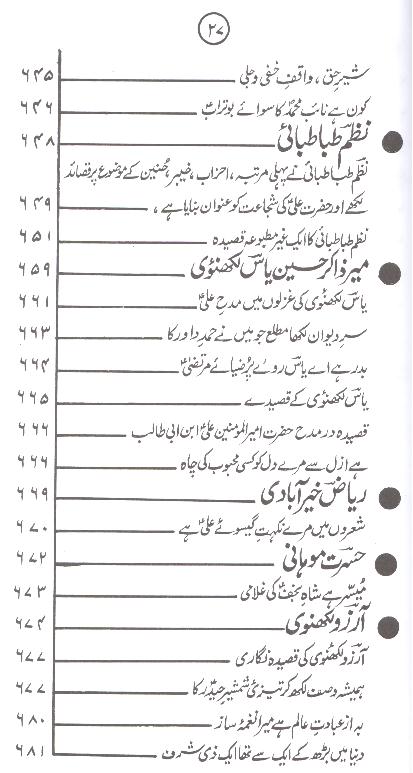 ۲۷
شیرِ حق، واقفِ خفی و جلی ۶۴۵
کون ہے نائب محمدؐ کا سوائے بوترابؑ ۶۴۶
نظم طباطبائی ۶۴۸
نظم طباطبائی نے پہلی مرتبہ، احزاب، خیبر، حنین کے موضوع پر قصائد
لکھے اور حضرت علیؑ کی شجاعت کو عنوان بنایا ہے، ۶۴۹
نظم طباطبائی کا ایک غیر مطبوعہ قصیدہ ۶۵۱
میر ذاکر حسین یاسؔ لکھنوی ۶۵۹
یاسؔ لکھنوی کی غزلوں میں مدحِ علیؑ ۶۶۱
سرِ دیوان لکھا مطلع جو میں نے حمدِ داور کا ۶۶۳
بدر ہے اے یاسؔ روے پُر ضیائے مرتضیٰؑ ۶۶۴
یاسؔ لکھنوی کے قصیدے ۶۶۵
قصیدہ در مدح حضرت امیر المومنین علیؑ ابن ابی طالب ۶۶۶
ہے ازل سے مرے دل کو کسی محبوب کی چاہ ۶۶۶
ریاضؔ خیر آبادی ۶۶۹
شعروں میں مرے نکہتِ گیسوئے علیؑ ہے ۶۷۰
حسرتؔ موہانی ۶۷۲
میسّر ہے شاہِ نجفؑ کی غلامی ۶۷۳
آرزوؔ لکھنوی ۶۷۴
آرزوؔ لکھنوی کی قصیدہ نگاری ۶۷۷
ہمیشہ وصف لکھ کر تیزیٔ شمشیرِ حیدرؑ کا ۶۷۷
بہ از عبادتِ عالم ہے میرا نغمۂ ساز ۶۸۰
دنیا میں بڑھ کے ایک سے تھا ایک ذی شرف ۶۸۱